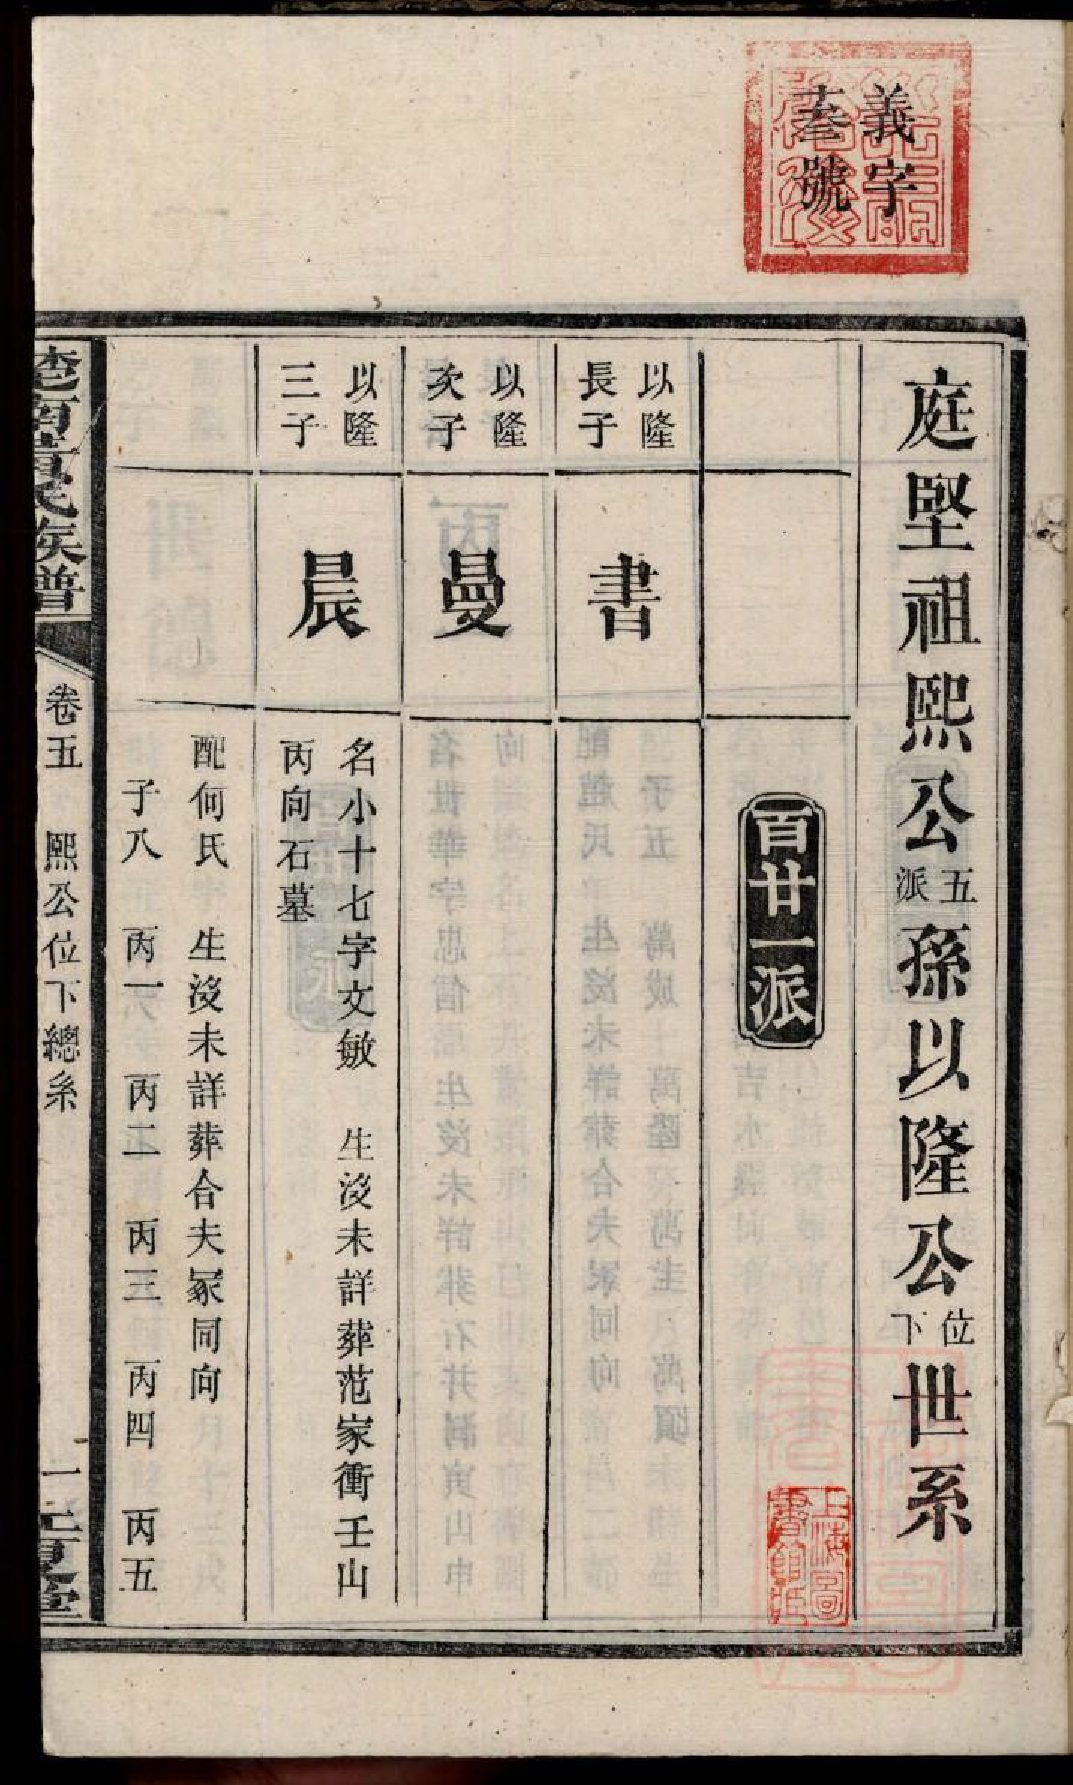 義字
叁號
庭堅祖熙公五派孫以隆公位下世系
百廿一派
以隆長子
書
以隆次子
曼
以隆三子
晨
名小十七字文敏 生沒未詳葬范家衝壬山
丙向石墓
配何氏 生沒未詳葬合夫冢同向
子八 丙一 丙二 丙三 丙四 丙五
族譜
卷五 熙公位下總系
一
上海圖書館藏